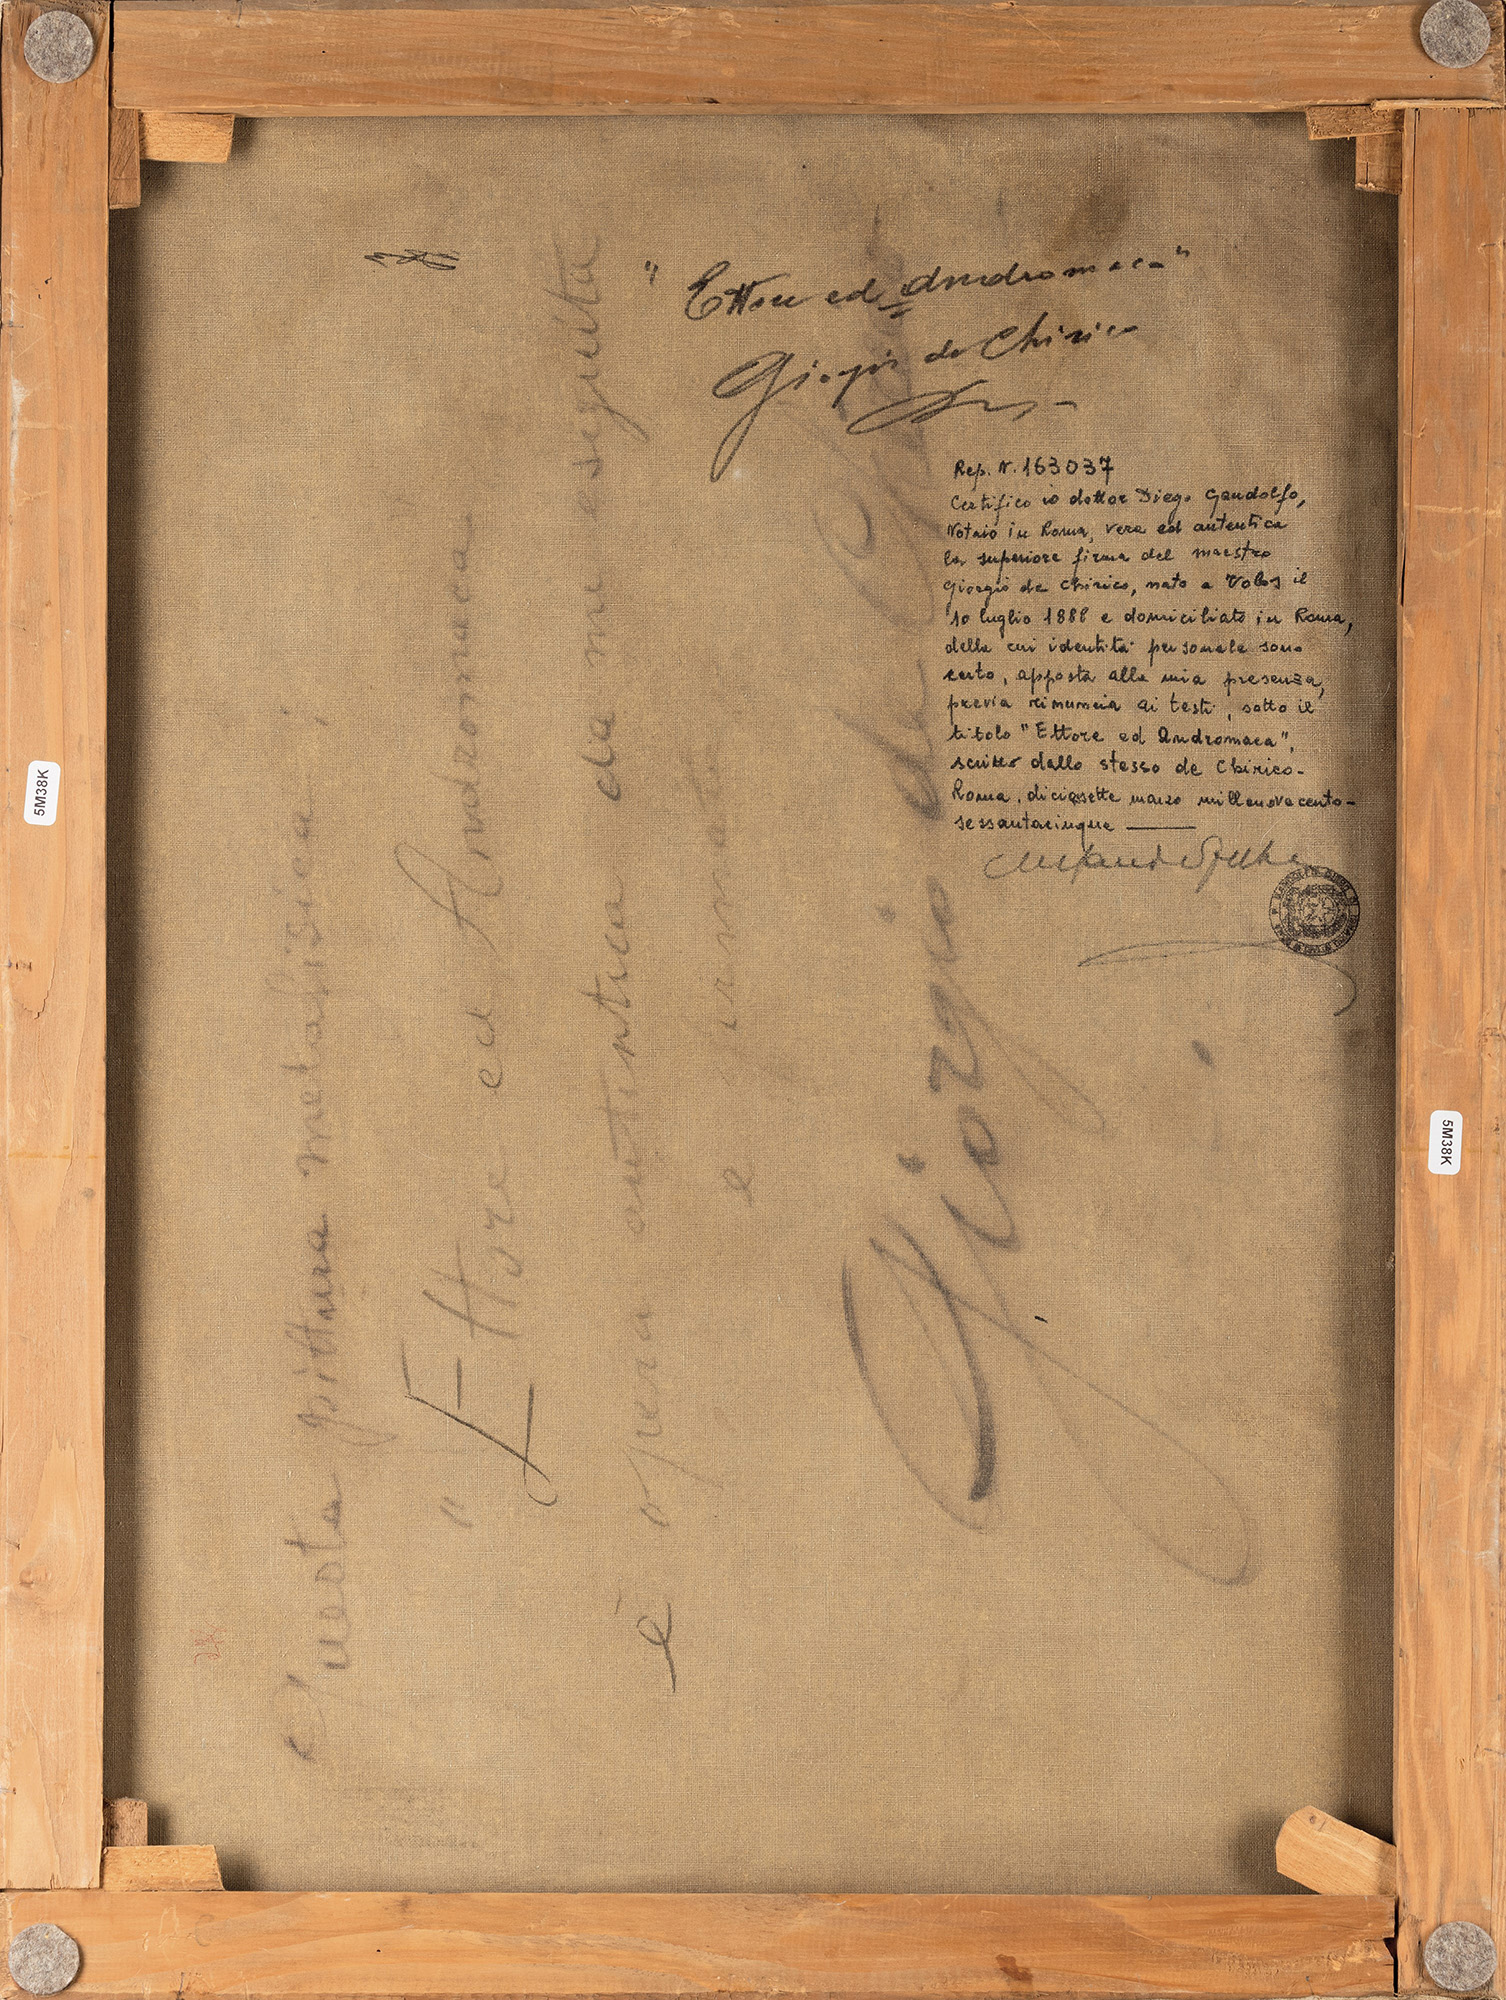 "Ettore ed Andromaca"
Giorgio de Chirico
Rep. N. 163037
Certifico io dottor Diego Gandolfo,
Notaio in Roma, vera ed autentica
la superiore firma del maestro
Giorgio de Chirico, nato a Volos il
10 luglio 1888 e domiciliato in Roma,
della cui identità personale sono
certo, apposta alla mia presenza,
previa rinuncia ai testi, sotto il
titolo "Ettore ed Andromaca",
scritto dallo stesso de Chirico-
Roma, diciassette marzo millenovecento-
sessantacinque
Questa pittura metafisica:
"Ettore ed Andromaca
è opera autentica da me eseguita
e firmata
Giorgio de Chirico
5M38K
5M38K